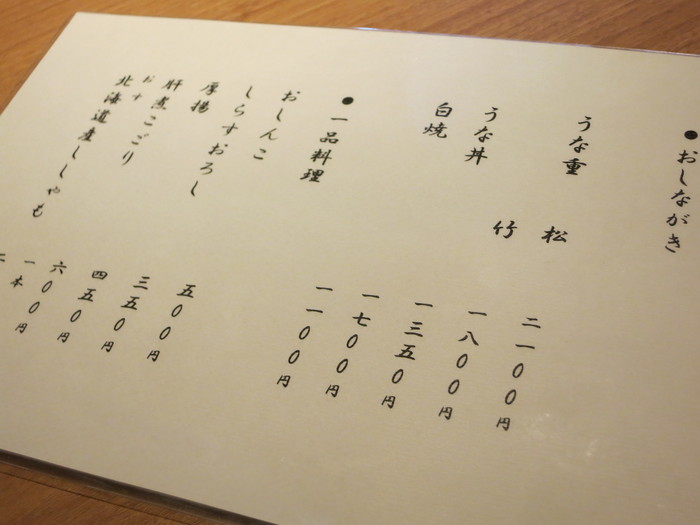 ●おしながき
うな重 松 二一〇〇円
竹 一八〇〇円
うな丼 一三五〇円
白焼 一七〇〇円
一一〇〇円
●一品料理
おしんこ 五〇〇円
しらすおろし 三五〇円
厚揚 四五〇円
肝煮こごり 六〇〇円
北海道産ししゃも おす 一本 円